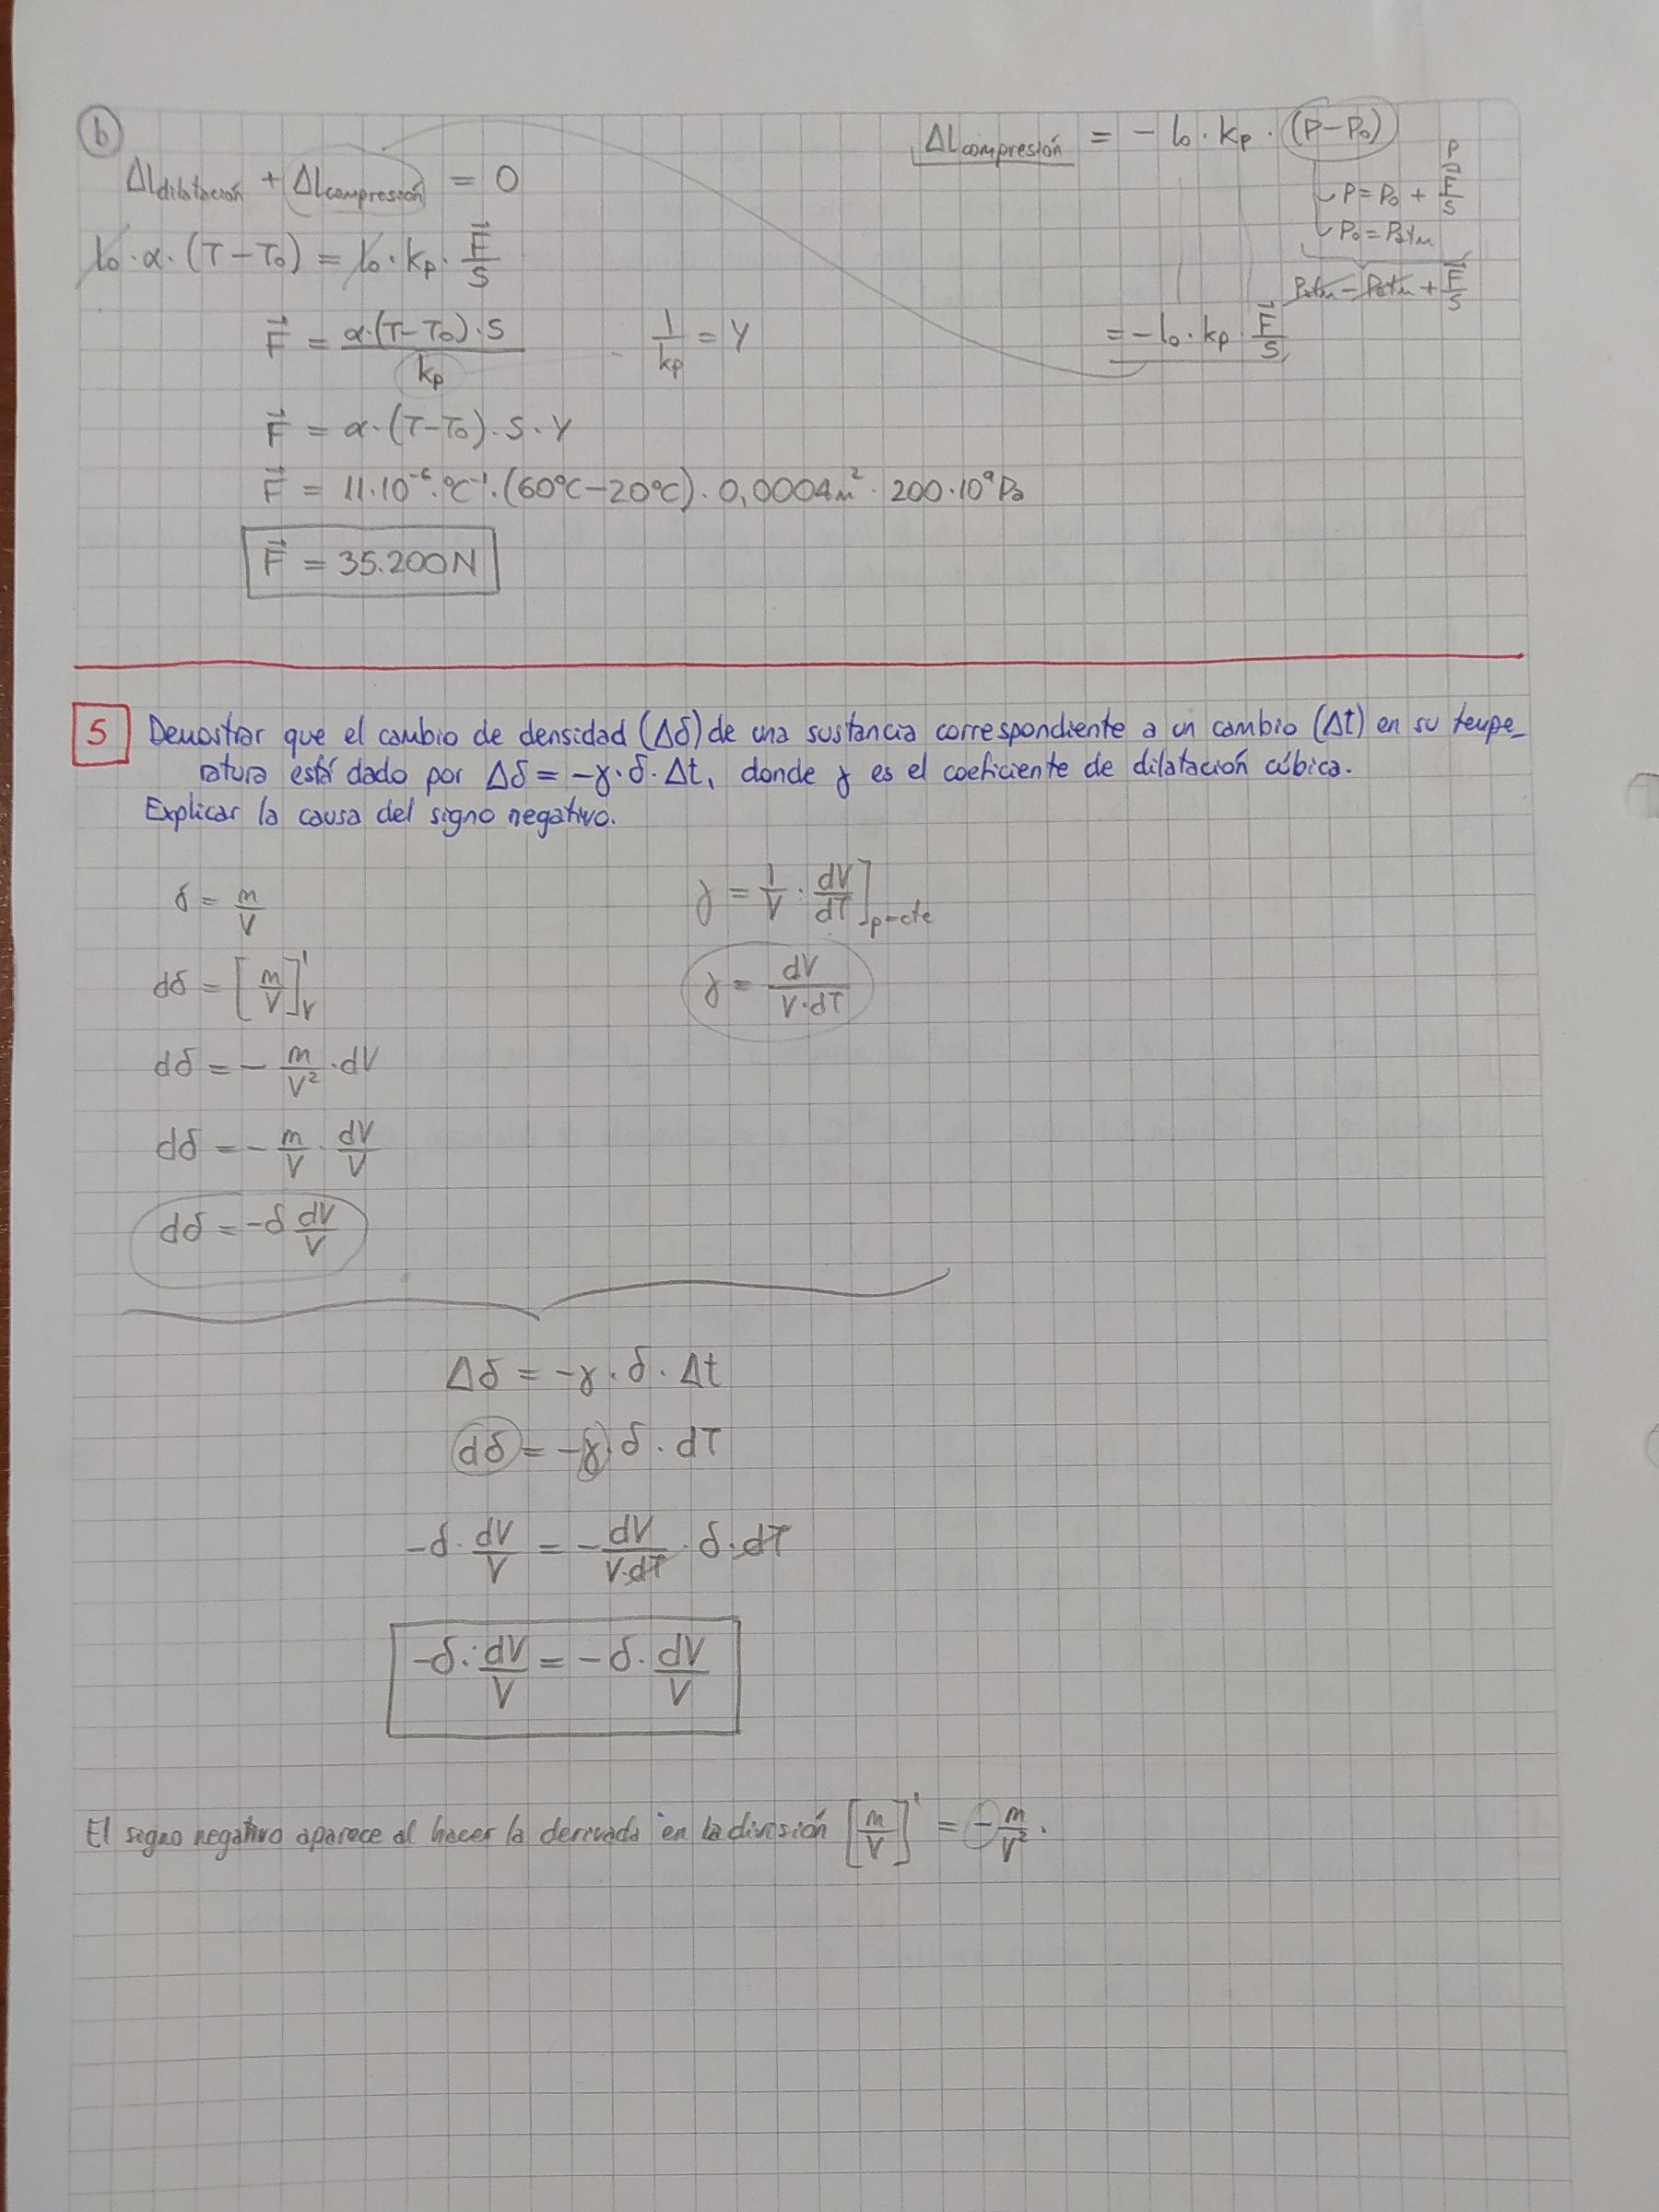 b
Δl dilatación + Δl compresión = 0
l₀·α·(T−T₀) = l₀·kp·F⃗/S
F⃗ = α·(T−T₀)·S / kp
1/kp = Y
F⃗ = α·(T−T₀)·S·Y
F⃗ = 11·10⁻⁶·°C⁻¹·(60°C−20°C)·0,0004m²·200·10⁹Pa
F⃗ = 35.200N
ΔL compresión = − l₀·kp·(P−P₀)
P = P₀ + F⃗/S
P
P₀ = Patm
Patm − Patm + F⃗/S
= −l₀·kp·F⃗/S
5 Demostrar que el cambio de densidad (Δδ) de una sustancia correspondiente a un cambio (Δt) en su tempe_
ratura está dado por Δδ = −γ·δ·Δt, donde γ es el coeficiente de dilatación cúbica.
Explicar la causa del signo negativo.
δ = m/V
dδ = [m/V]'v
dδ = − m/V²·dV
dδ = − m/V·dV/V
dδ = −δ dV/V
γ = 1/V·dV/dT]p−cte
γ = dV/V·dT
Δδ = −γ·δ·Δt
dδ = −γ·δ·dT
−δ·dV/V = − dV/V·dT·δ·dT
−δ·dV/V = −δ·dV/V
El signo negativo aparece al hacer la derivada en la división [m/V]' = − m/V².